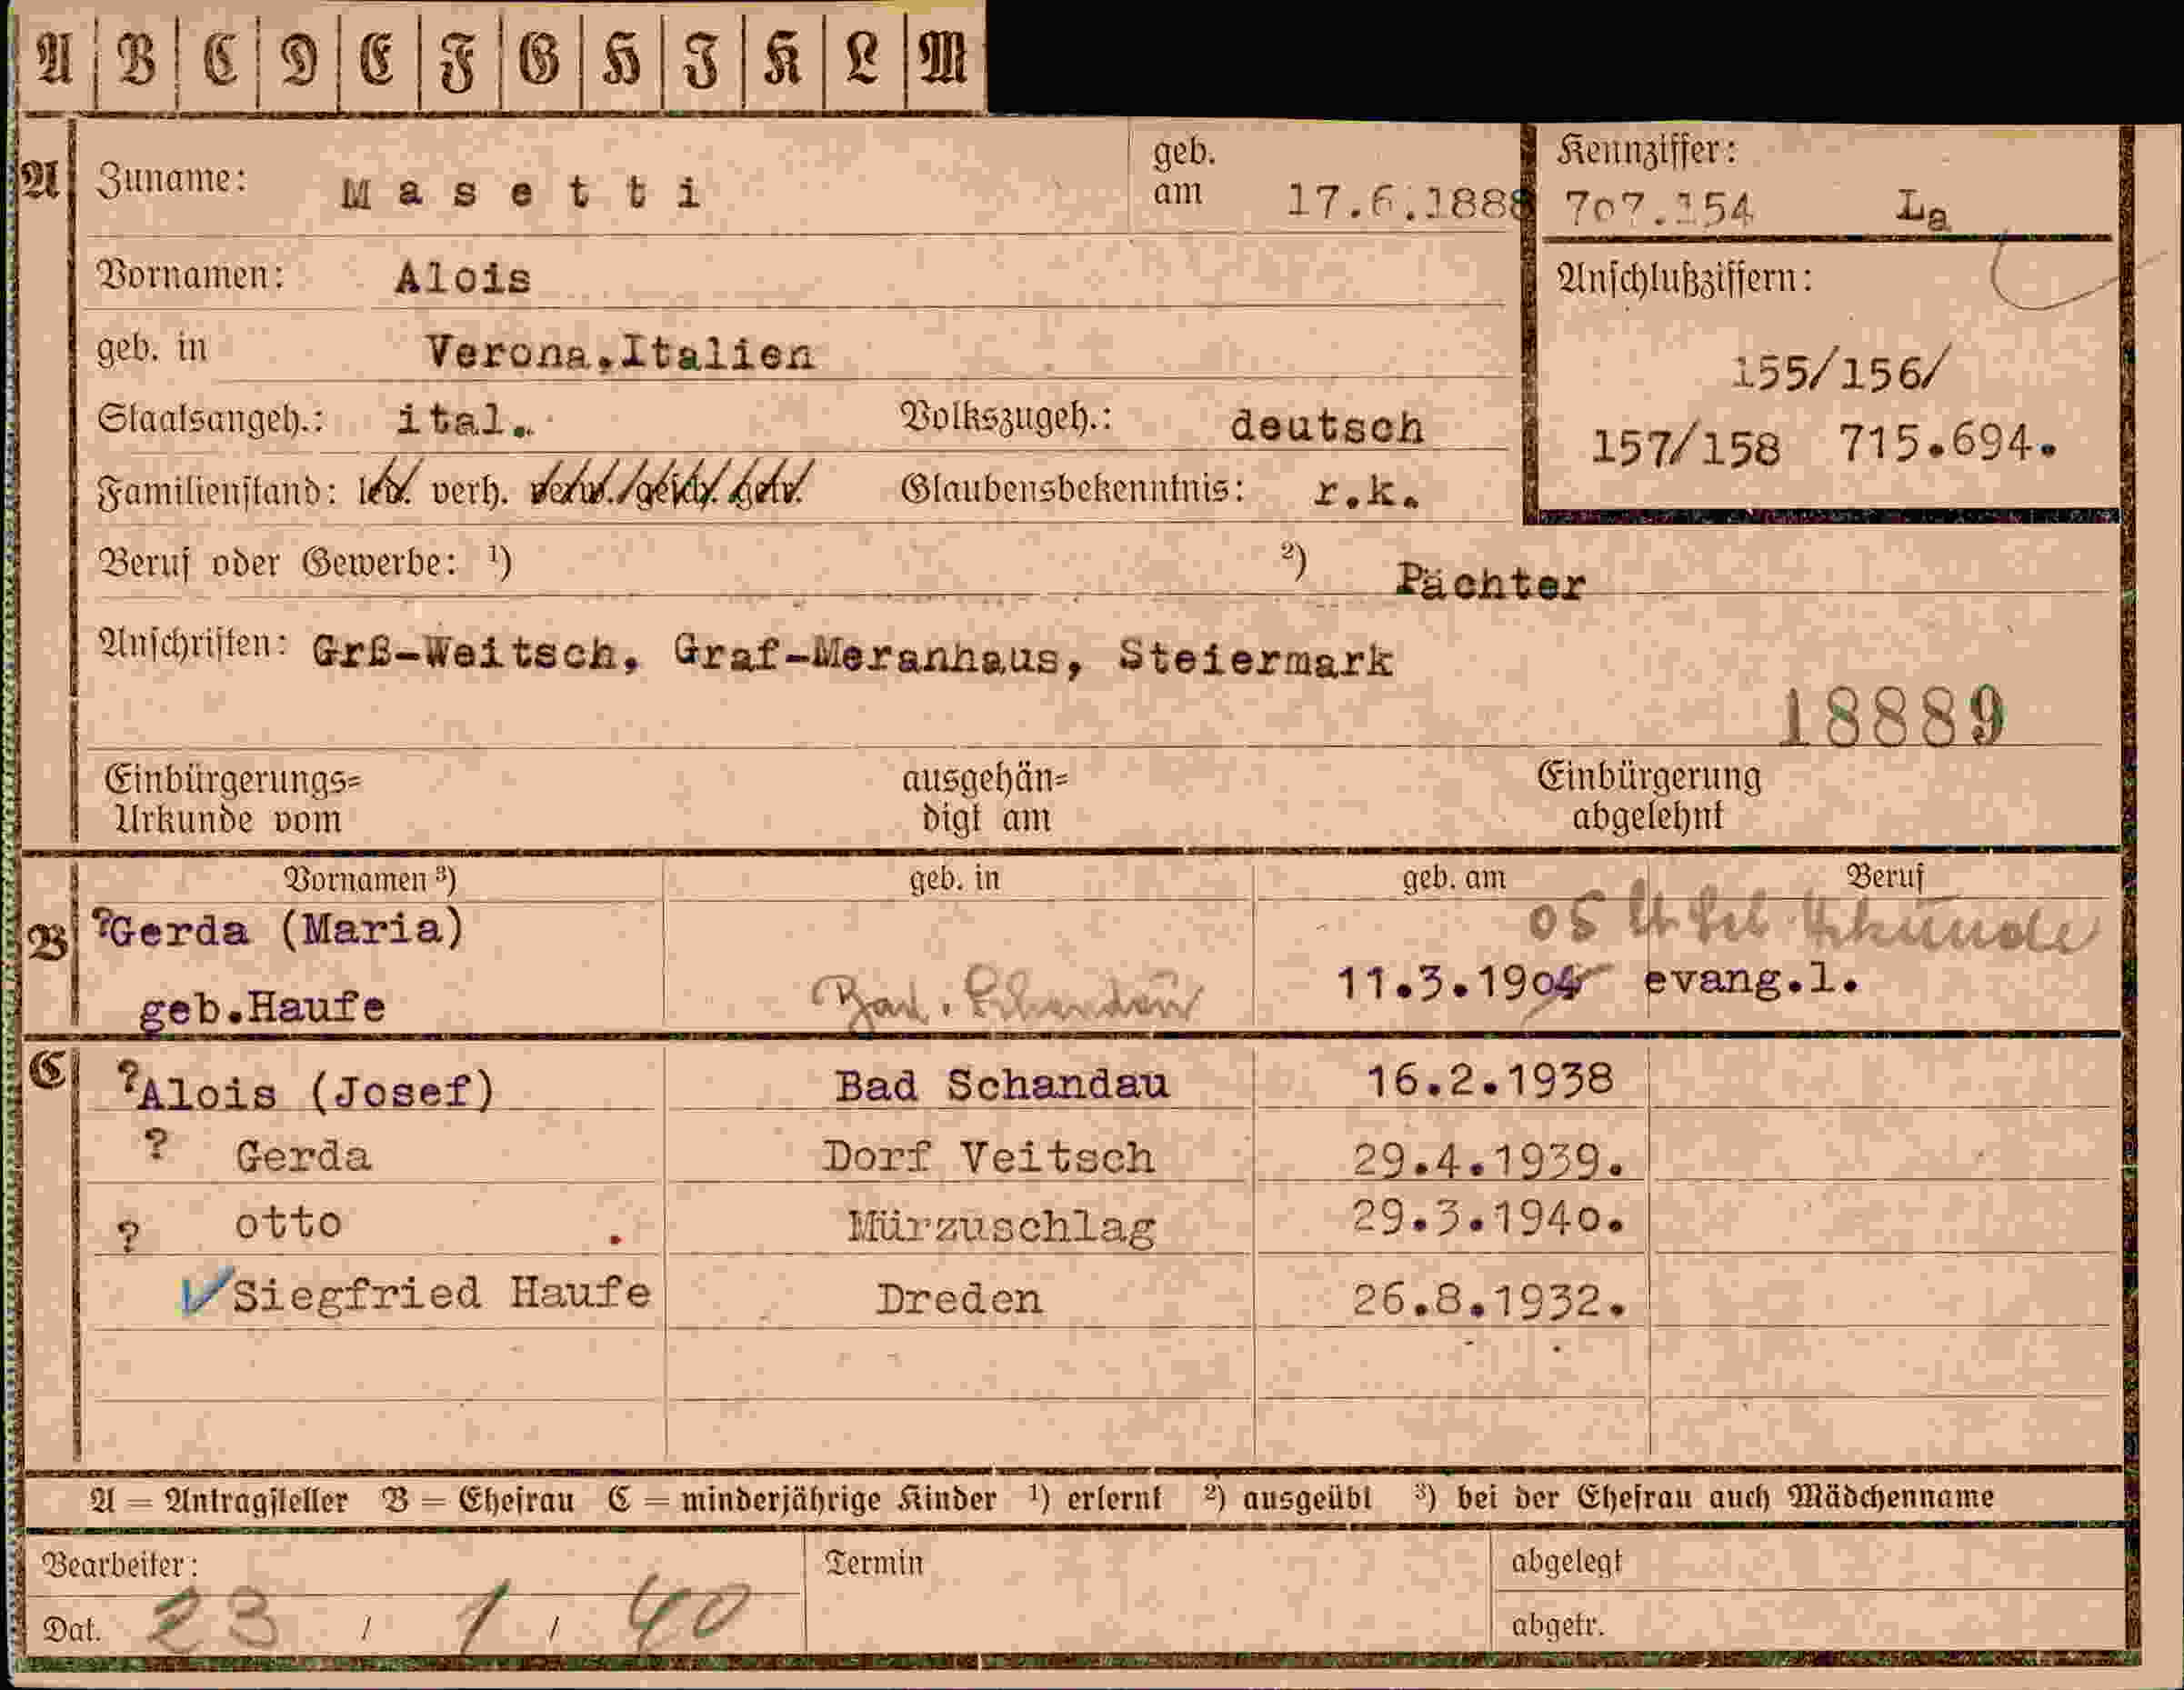 A B C D E F G H I K L M
A Zuname: Masetti geb. am 17.6.1888 Kennziffer: 707.154 La
Vornamen: Alois Anschlußziffern:
geb. in Verona,Italien 155/156/
Staatsangeh.: ital. Volkszugeh.: deutsch 157/158 715.694.
Familienstand: led. verh. verw. gesch. getr. Glaubensbekenntnis: r.k.
Beruf oder Gewerbe: ¹) ²) Pächter
Anschriften: Grß-Weitsch, Graf-Meranhaus, Steiermark
18889
Einbürgerungs= ausgehän= Einbürgerung
Urkunde vom digt am abgelehnt
Vornamen ³) geb. in geb. am Beruf
B ?Gerda (Maria) 05 lt Urkunde
geb.Haufe Bad. Schandau 11.3.1904 evang.l.
C ?Alois (Josef) Bad Schandau 16.2.1938
? Gerda Dorf Veitsch 29.4.1939.
? otto Mürzuschlag 29.3.1940.
Siegfried Haufe Dreden 26.8.1932.
A = Antragsteller B = Ehefrau C = minderjährige Kinder ¹) erlernt ²) ausgeübt ³) bei der Ehefrau auch Mädchenname
Bearbeiter: Termin abgelegt
Dat. 23 / 1 / 40 abgetr.